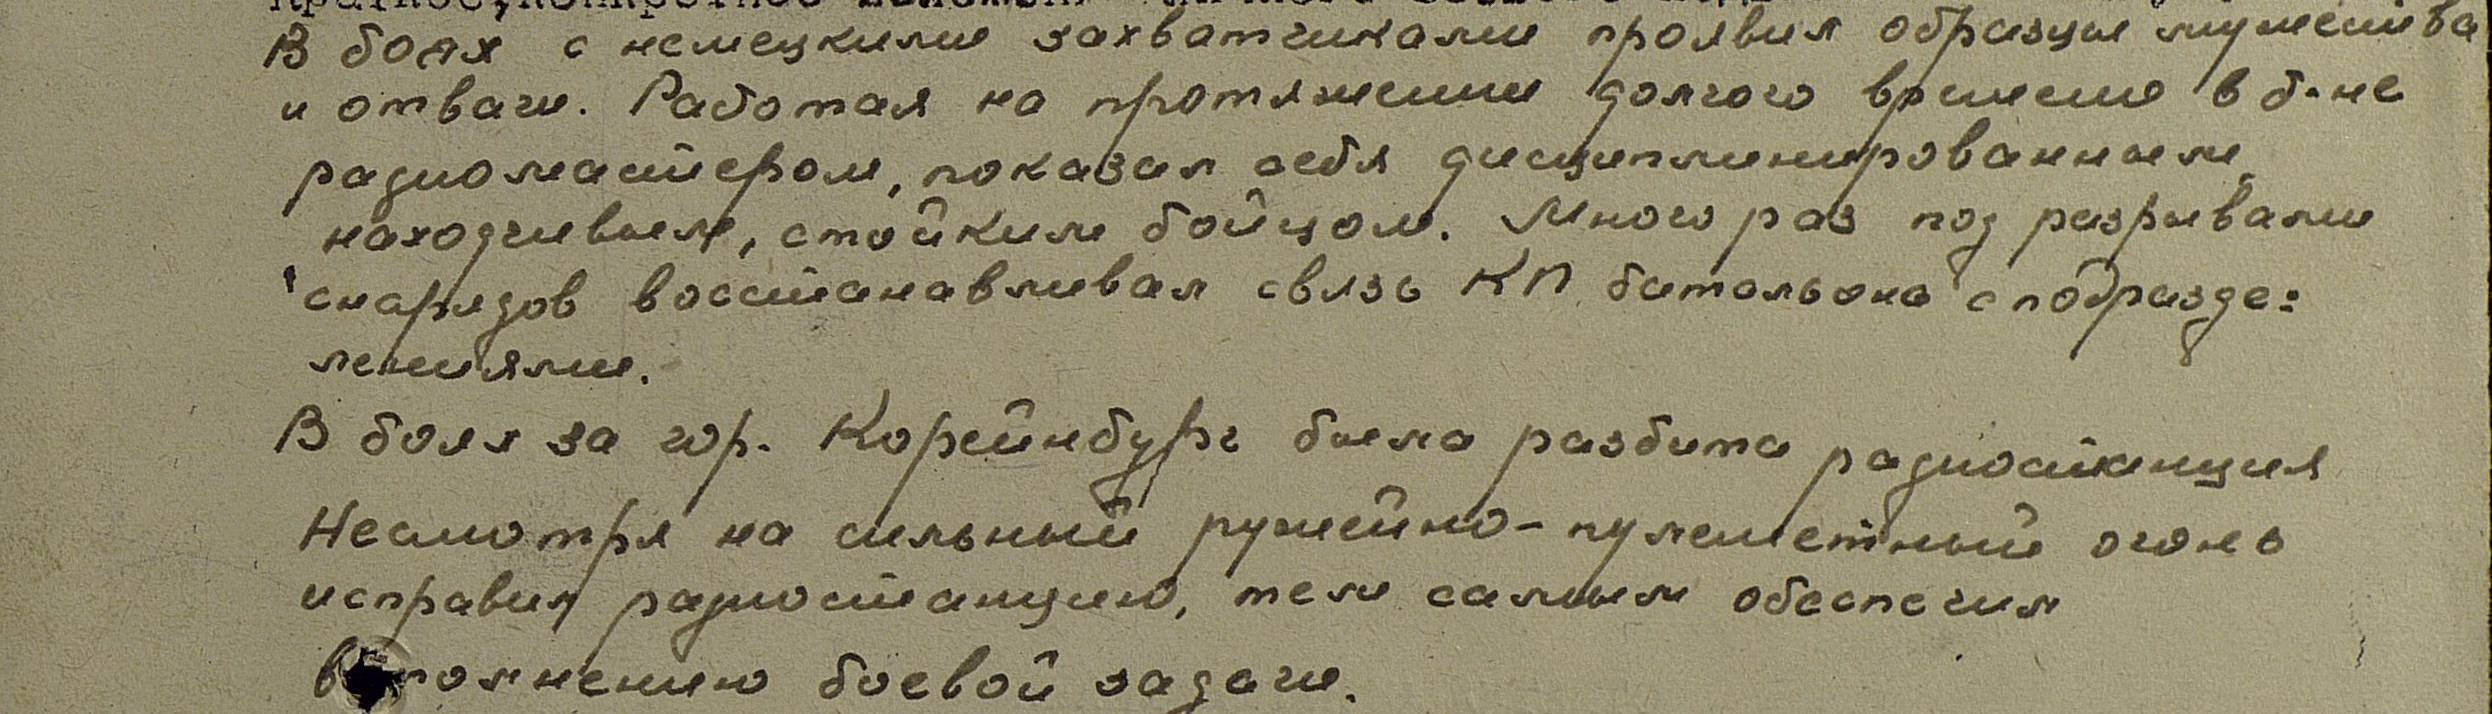 В боях с немецкими захватчиками проявил образцы мужества
и отваги. Работая на протяжении долгого времени в б-не
радиомастером, показал себя дисциплинированным,
находчивым, стойким бойцом. Много раз под разрывами
снарядов восстанавливал связь КП батальона с подразде-
лениями.
В боях за гор. Корейнбург была разбита радиостанция
Несмотря на сильный ружейно-пулеметный огонь
исправил радиостанцию, тем самым обеспечил
выполнению боевой задачи.